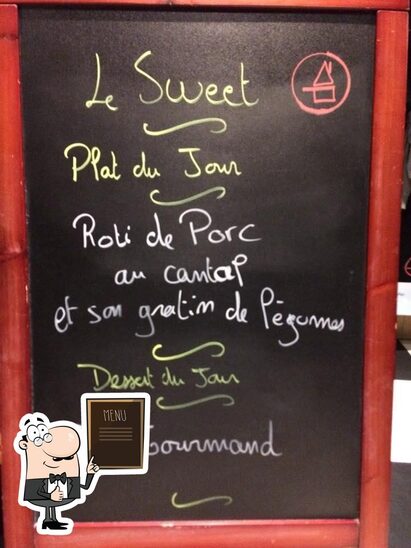 Le Sweet
Plat du Jour
Roti de Porc
au cantal
et son gratin de légumes
Dessert du Jour
MENU
Gourmand